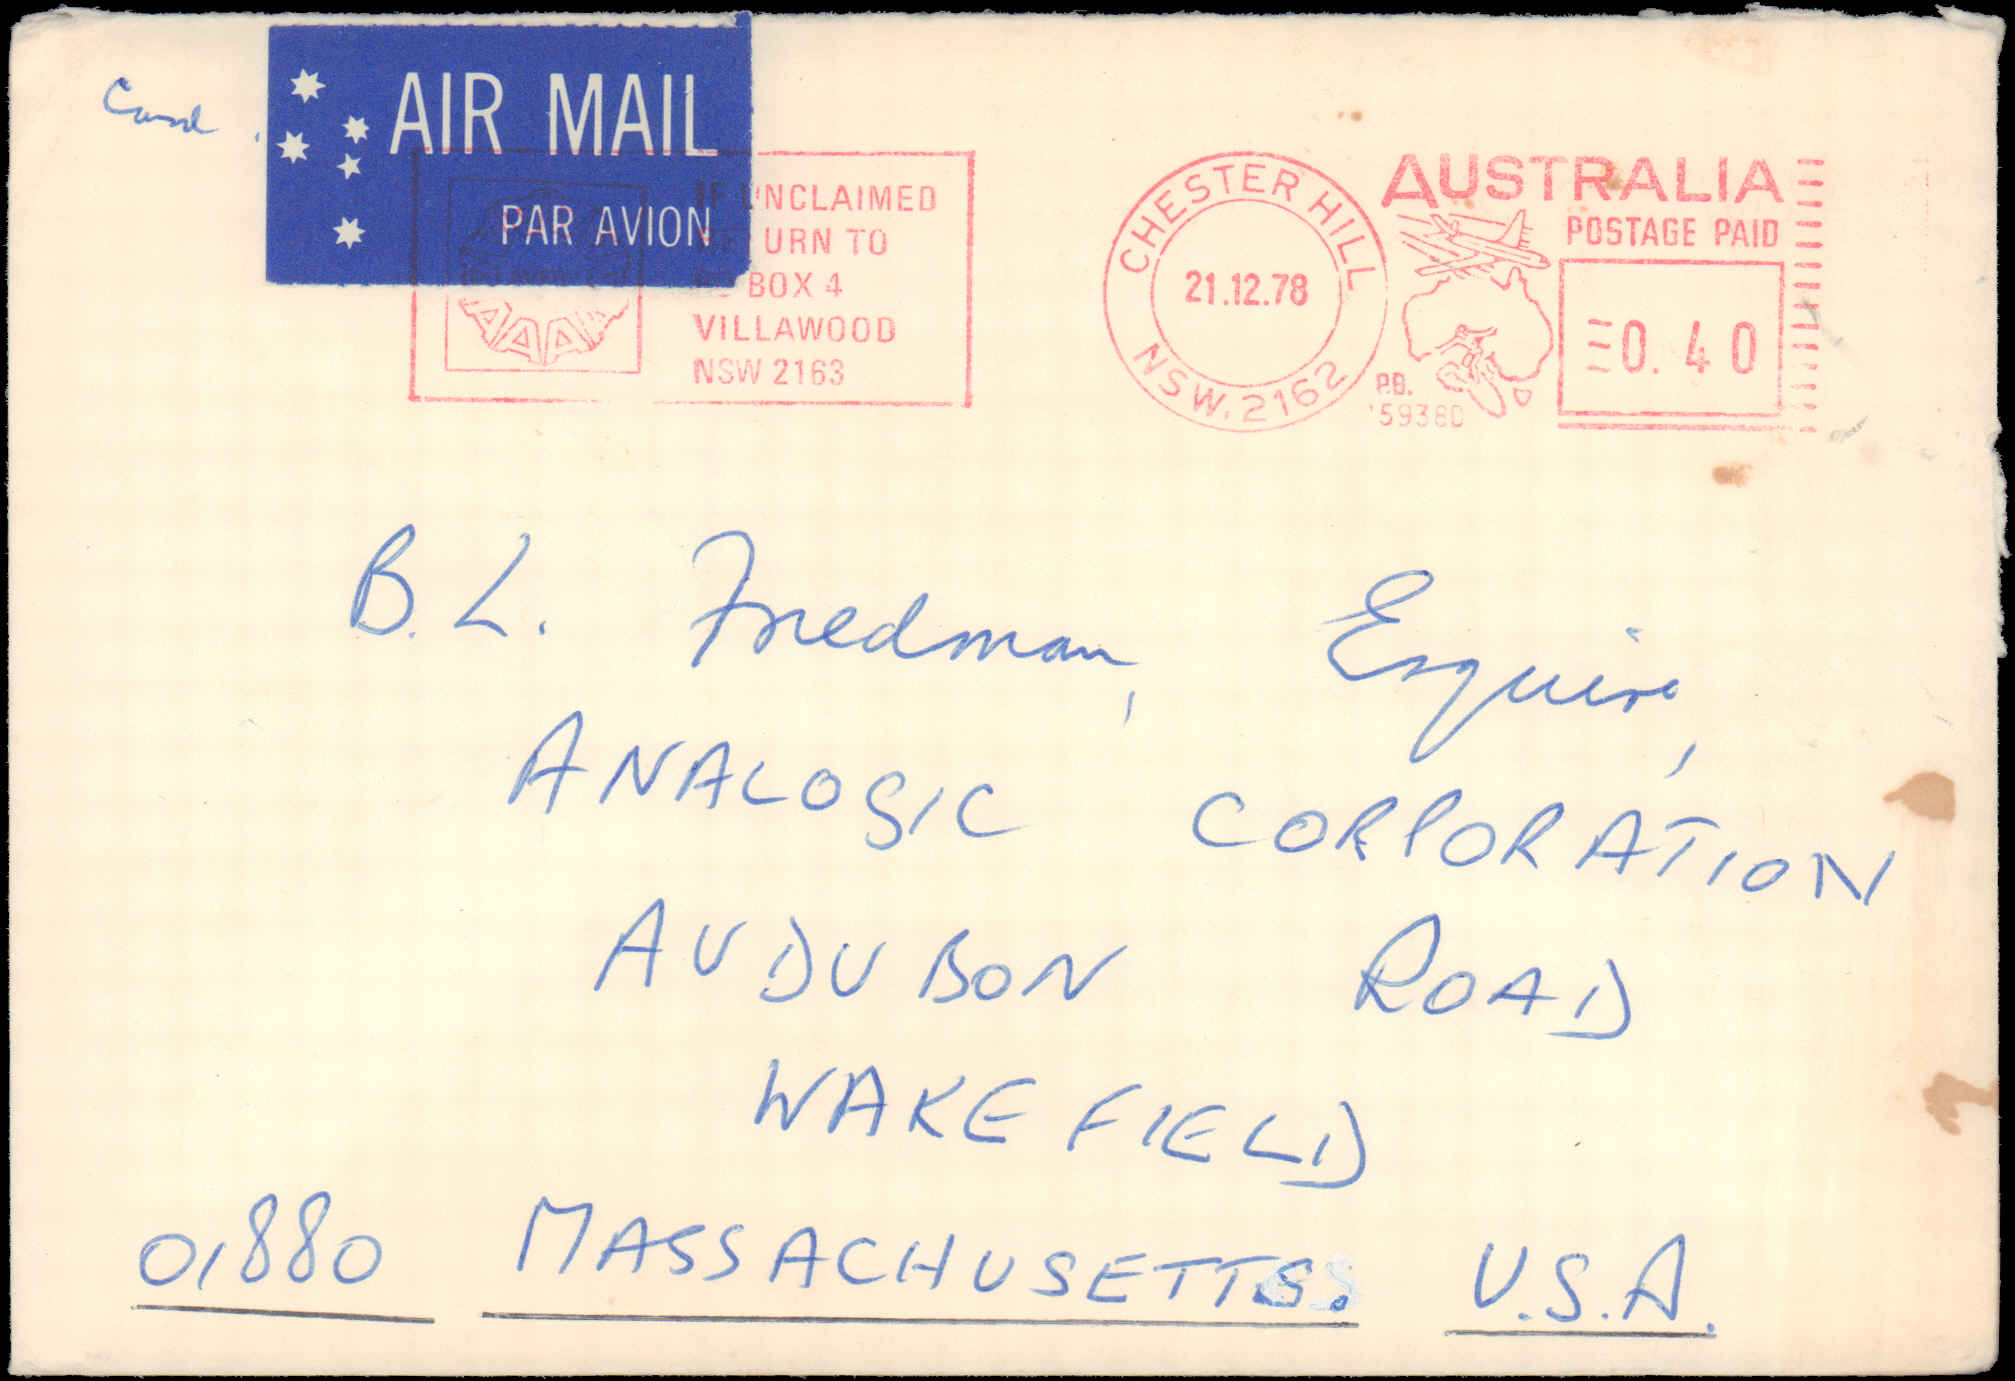 Card.
AIR MAIL
PAR AVION
IF UNCLAIMED
RETURN TO
PO BOX 4
VILLAWOOD
NSW 2163
CHESTER HILL
21.12.78
NSW. 2162
AUSTRALIA
POSTAGE PAID
0.40
P.B.
5938D
B. L. Friedman, Esquire,
ANALOGIC CORPORATION
AUDUBON ROAD
WAKEFIELD
01880 MASSACHUSETTS. U.S.A.